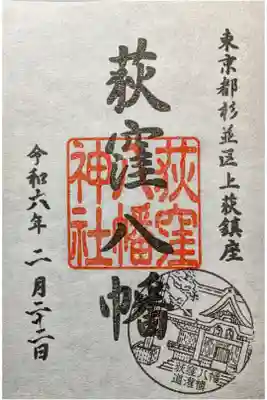 東京都杉並区上荻鎮座
荻窪八幡
荻窪
八幡
神社
令和六年二月二十二日
荻窪八幡
道灌槇